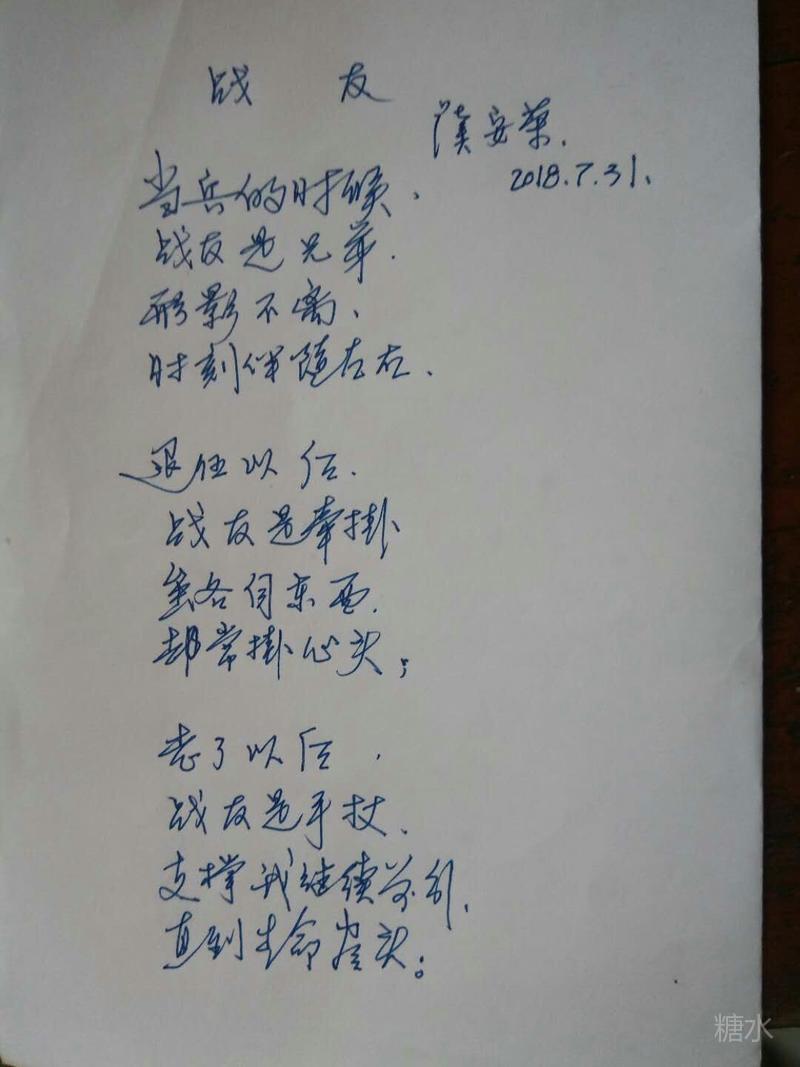 战 友
安荣.
2018.7.31.
当兵的时候、
战友是兄弟.
形影不离、
时刻伴随左右.
退伍以后.
战友是牵掛
各 东西.
却常掛心头；
老了以后，
战友是手杖、
支撑我继续前行，
直到生命尽头。
糖水